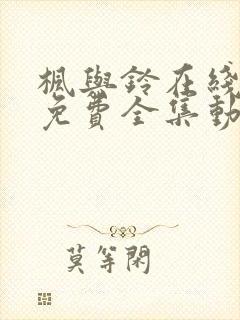 楓與鈴在綫
免費全集動
莫等閑